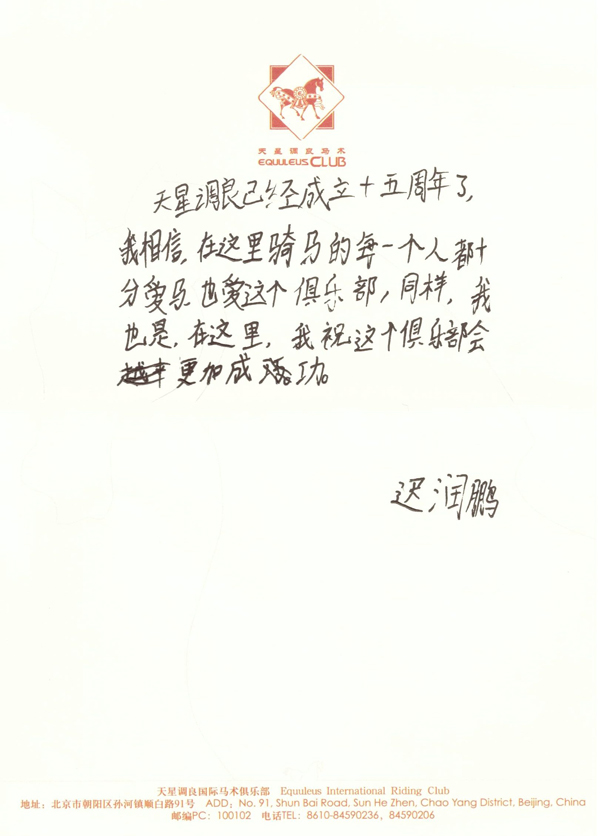 天星调良马术
EQUULEUS CLUB
天星调良已经成立十五周年了,
我相信,在这里骑马的每一个人都十
分爱马也爱这个俱乐部,同样,我
也是,在这里,我祝这个俱乐部会
更加成功。
迟润鹏
天星调良国际马术俱乐部 Equuleus International Riding Club
地址:北京市朝阳区孙河镇顺白路91号 ADD: No. 91, Shun Bai Road, Sun He Zhen, Chao Yang District, Beijing, China
邮编PC: 100102 电话TEL: 8610-84590236, 84590206